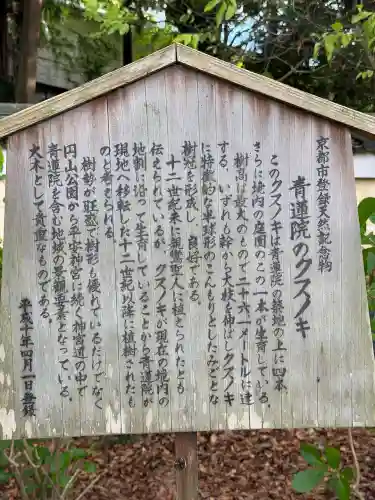 京都市登録天然記念物
青蓮院のクスノキ
このクスノキは青蓮院の築地の上に四本、
さらに境内の庭園のこの一本が生育している。
樹高は最大のもので二十六・一メートルに達
する。いずれも幹から大枝を伸ばしクスノキ
に特徴的な半球形のこんもりとしたみごとな
樹冠を形成し、良好である。
十二世紀末に親鸞聖人に植えられたとも
伝えられているが、クスノキが現在の境内の
地割に沿って生育していることから青蓮院が
現地へ移転した十三世紀以降に植樹されたも
のと考えられる。
樹勢が旺盛で樹形も優れているだけでなく
円山公園から平安神宮に続く神宮道の中で
青蓮院を含む地域の景観要素となっている。
大木として貴重なものである。
平成十年四月一日登録